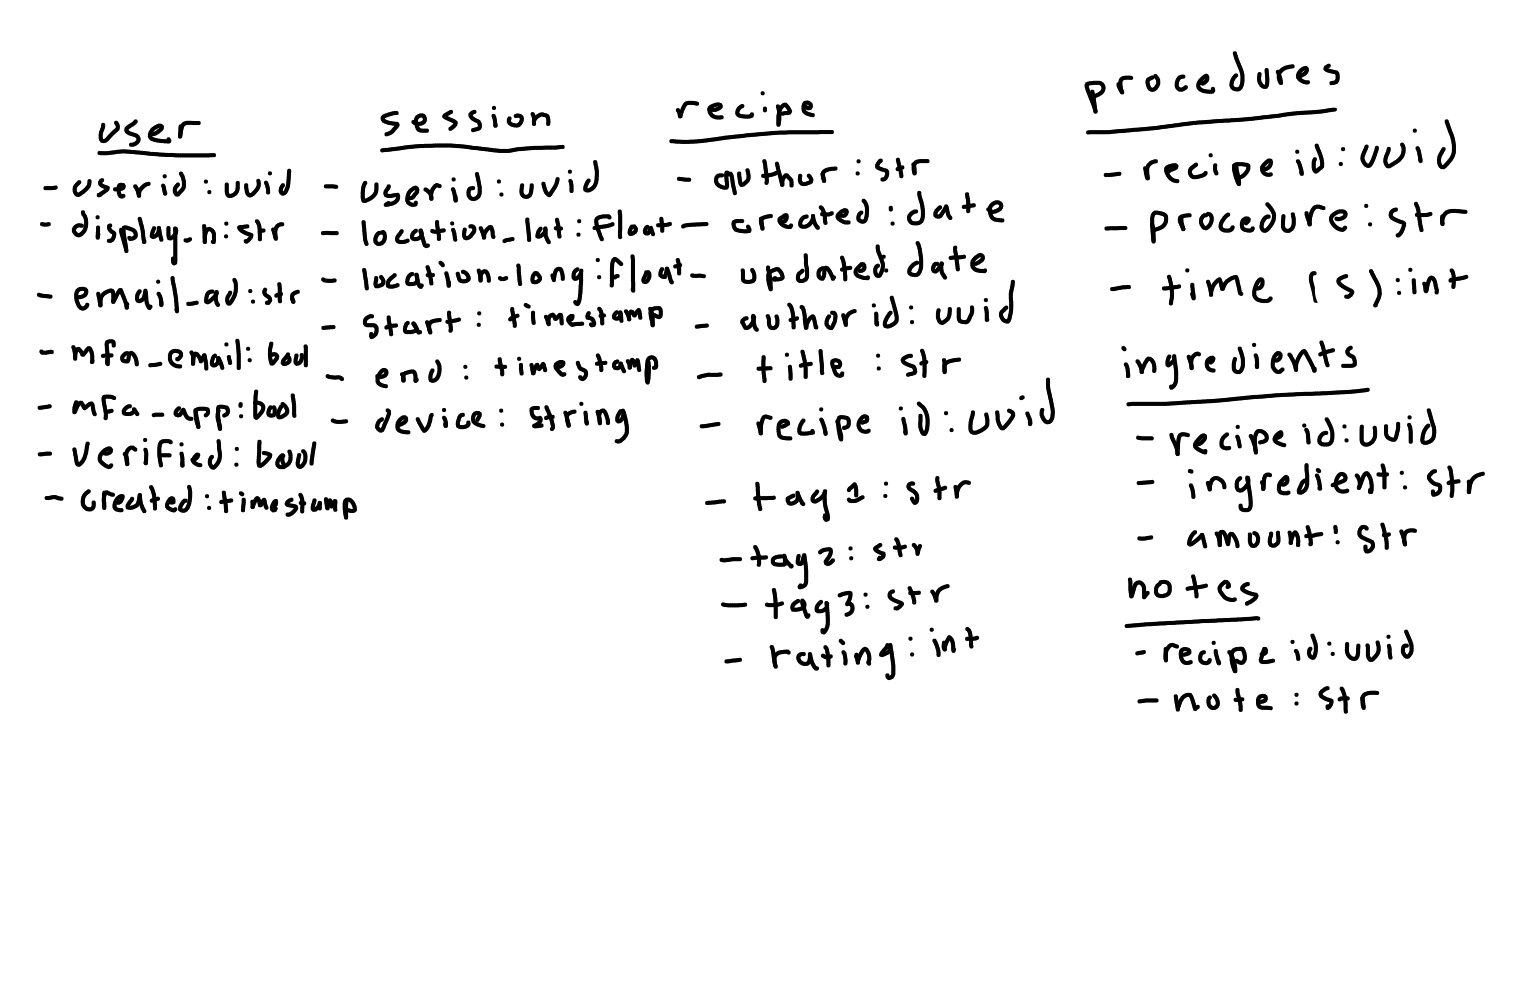 user
- userid : uuid
- display_n: str
- email_ad: str
- mfa_email: bool
- mfa_app: bool
- verified: bool
- created: timestamp
session
- userid : uuid
- location_lat: float
- location_long: float
- start: timestamp
- end: timestamp
- device: string
recipe
- author : str
- created : date
- updated: date
- author id: uuid
- title : str
- recipe id: uuid
- tag 1 : str
- tag 2 : str
- tag 3 : str
- rating: int
procedures
- recipe id: uuid
- procedure : str
- time (s) : int
ingredients
- recipe id: uuid
- ingredient: str
- amount: str
notes
- recipe id: uuid
- note : str